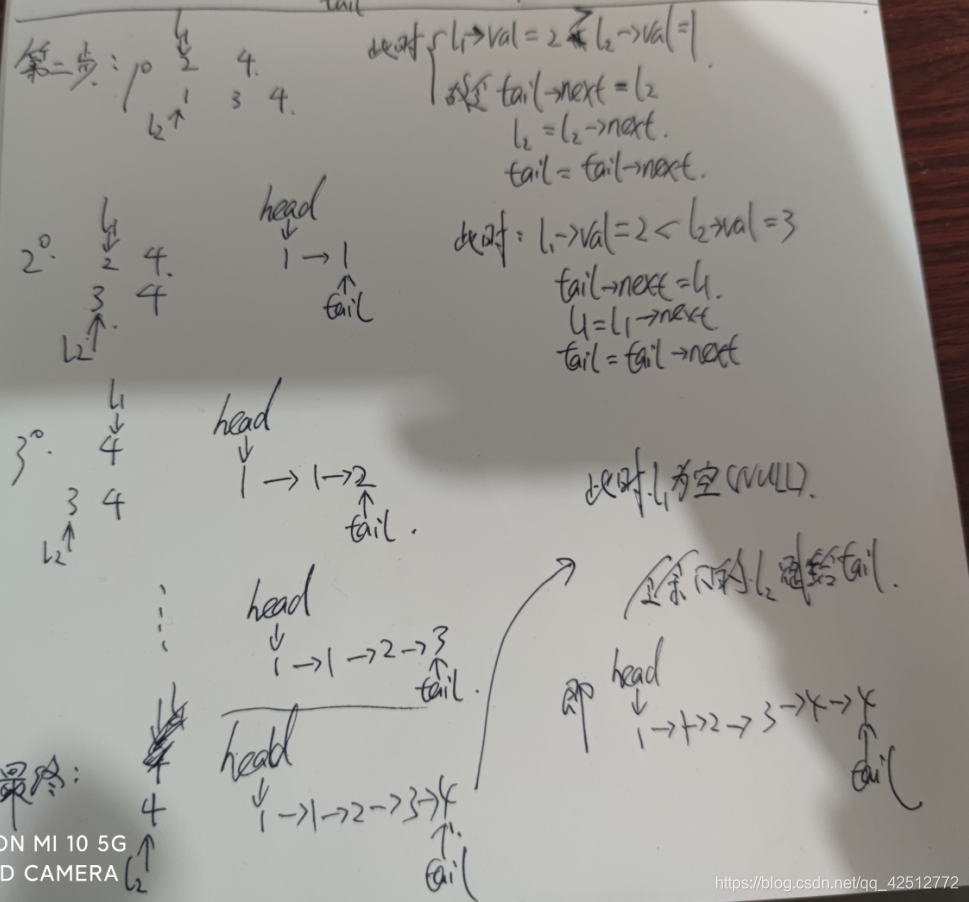 tail
第二步: 1° l1 ↓ 2 4.
1 3 4.
l2 ↑
此时 { l1→val = 2 l2→val = 1.
tail→next = l2
l2 = l2→next.
tail = tail→next.
2°. l1 ↓ 2 4.
3 4
l2 ↑.
head
↓
1 → 1
↑
tail
此时: l1→val = 2 < l2→val = 3
tail→next = l1.
l1 = l1→next
tail = tail→next
3°. l1 ↓ 4
3 4
l2 ↑
head
↓
1 → 1 → 2
↑
tail.
head
↓
1 → 1 → 2 → 3
↑
tail.
最终:
4
↑
l2
head
↓
1 → 1 → 2 → 3 → 4.
↑
tail
此时l1为空(NULL).
l2 给tail.
即 head
↓
1 → 1 → 2 → 3 → 4 → 4
↑
tail
ON MI 10 5G
D CAMERA
https://blog.csdn.net/qq_42512772